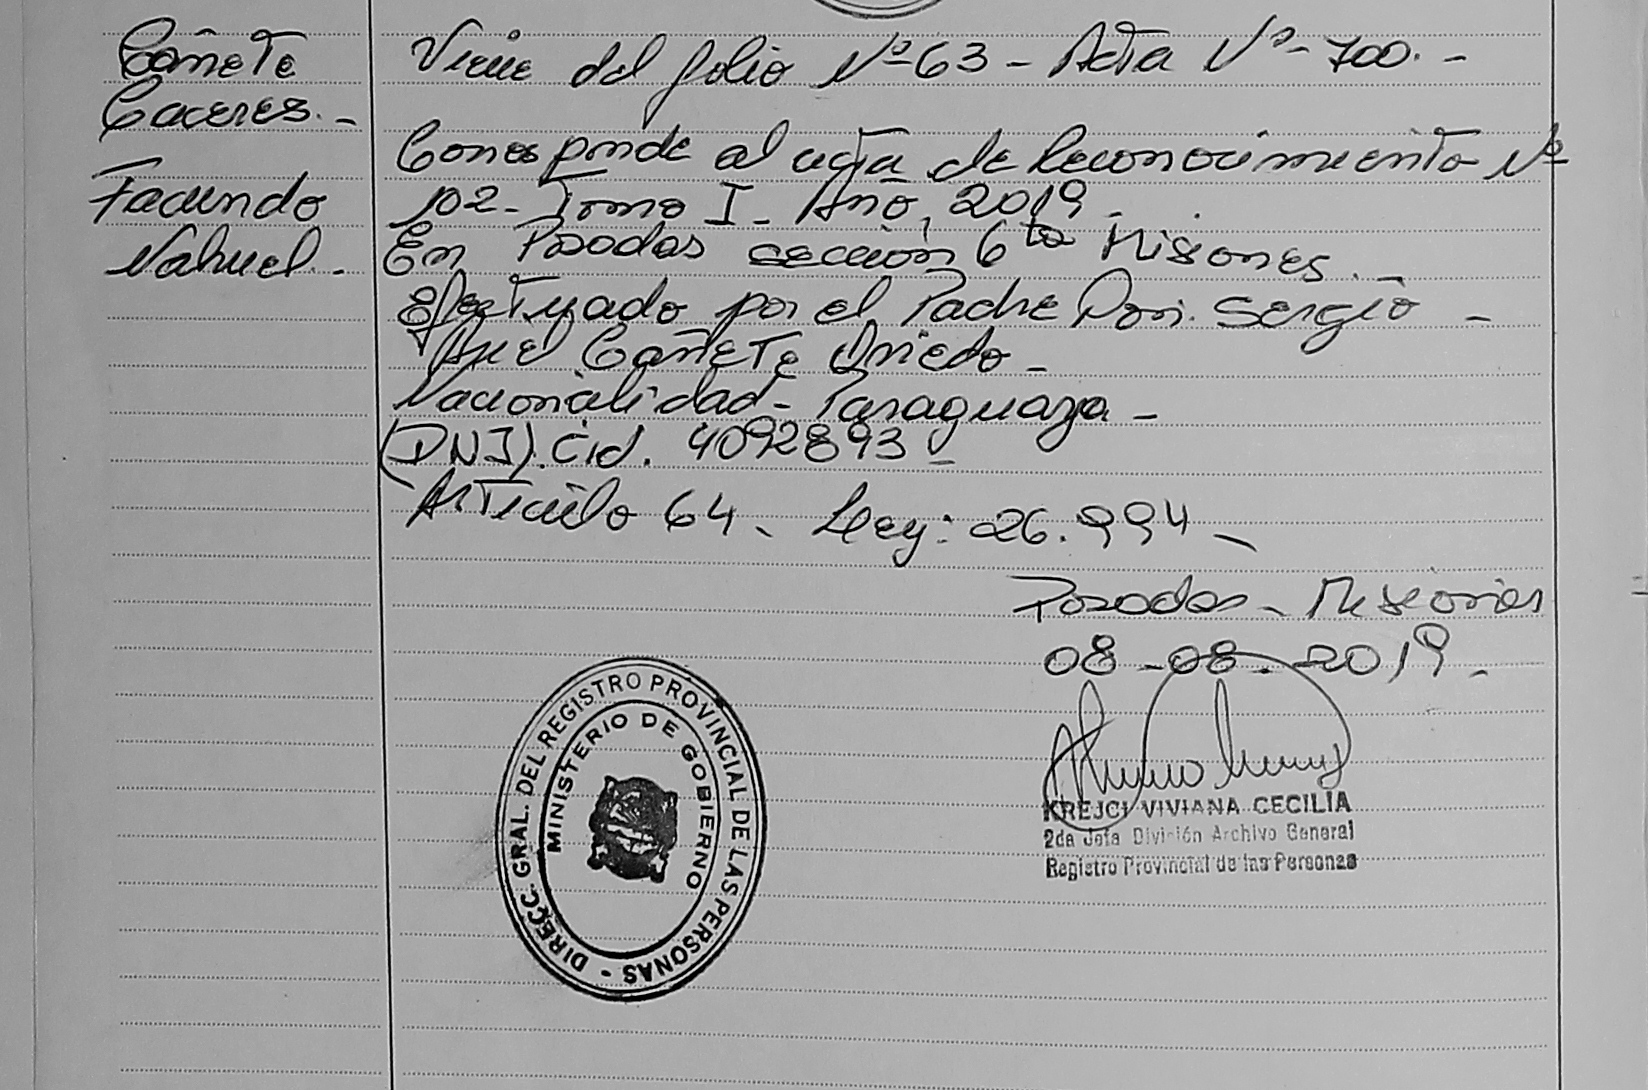 Cañete
Caceres.-
Facundo
Nahuel.-
Viene del folio Nº 63 - Acta Nº - 700. -
Corresponde al acta de Reconocimiento Nº
102 - Tomo I - Año, 2019 -
En Posadas sección 6ta Misiones. -
Efectuado por el Padre Don: Sergio -
Ariel Cañete Oviedo -
Nacionalidad - Paraguaya -
(DNI). Cid. 4092893 -
Articulo 64 - Ley: 26.994 -
Posadas - Misiones
08 - 08 - 2019 -
KREJCI VIVIANA CECILIA
2da Jefa División Archivo General
Registro Provincial de las Personas
DIRECC. GRAL. DEL REGISTRO PROVINCIAL DE LAS PERSONAS -
MINISTERIO DE GOBIERNO